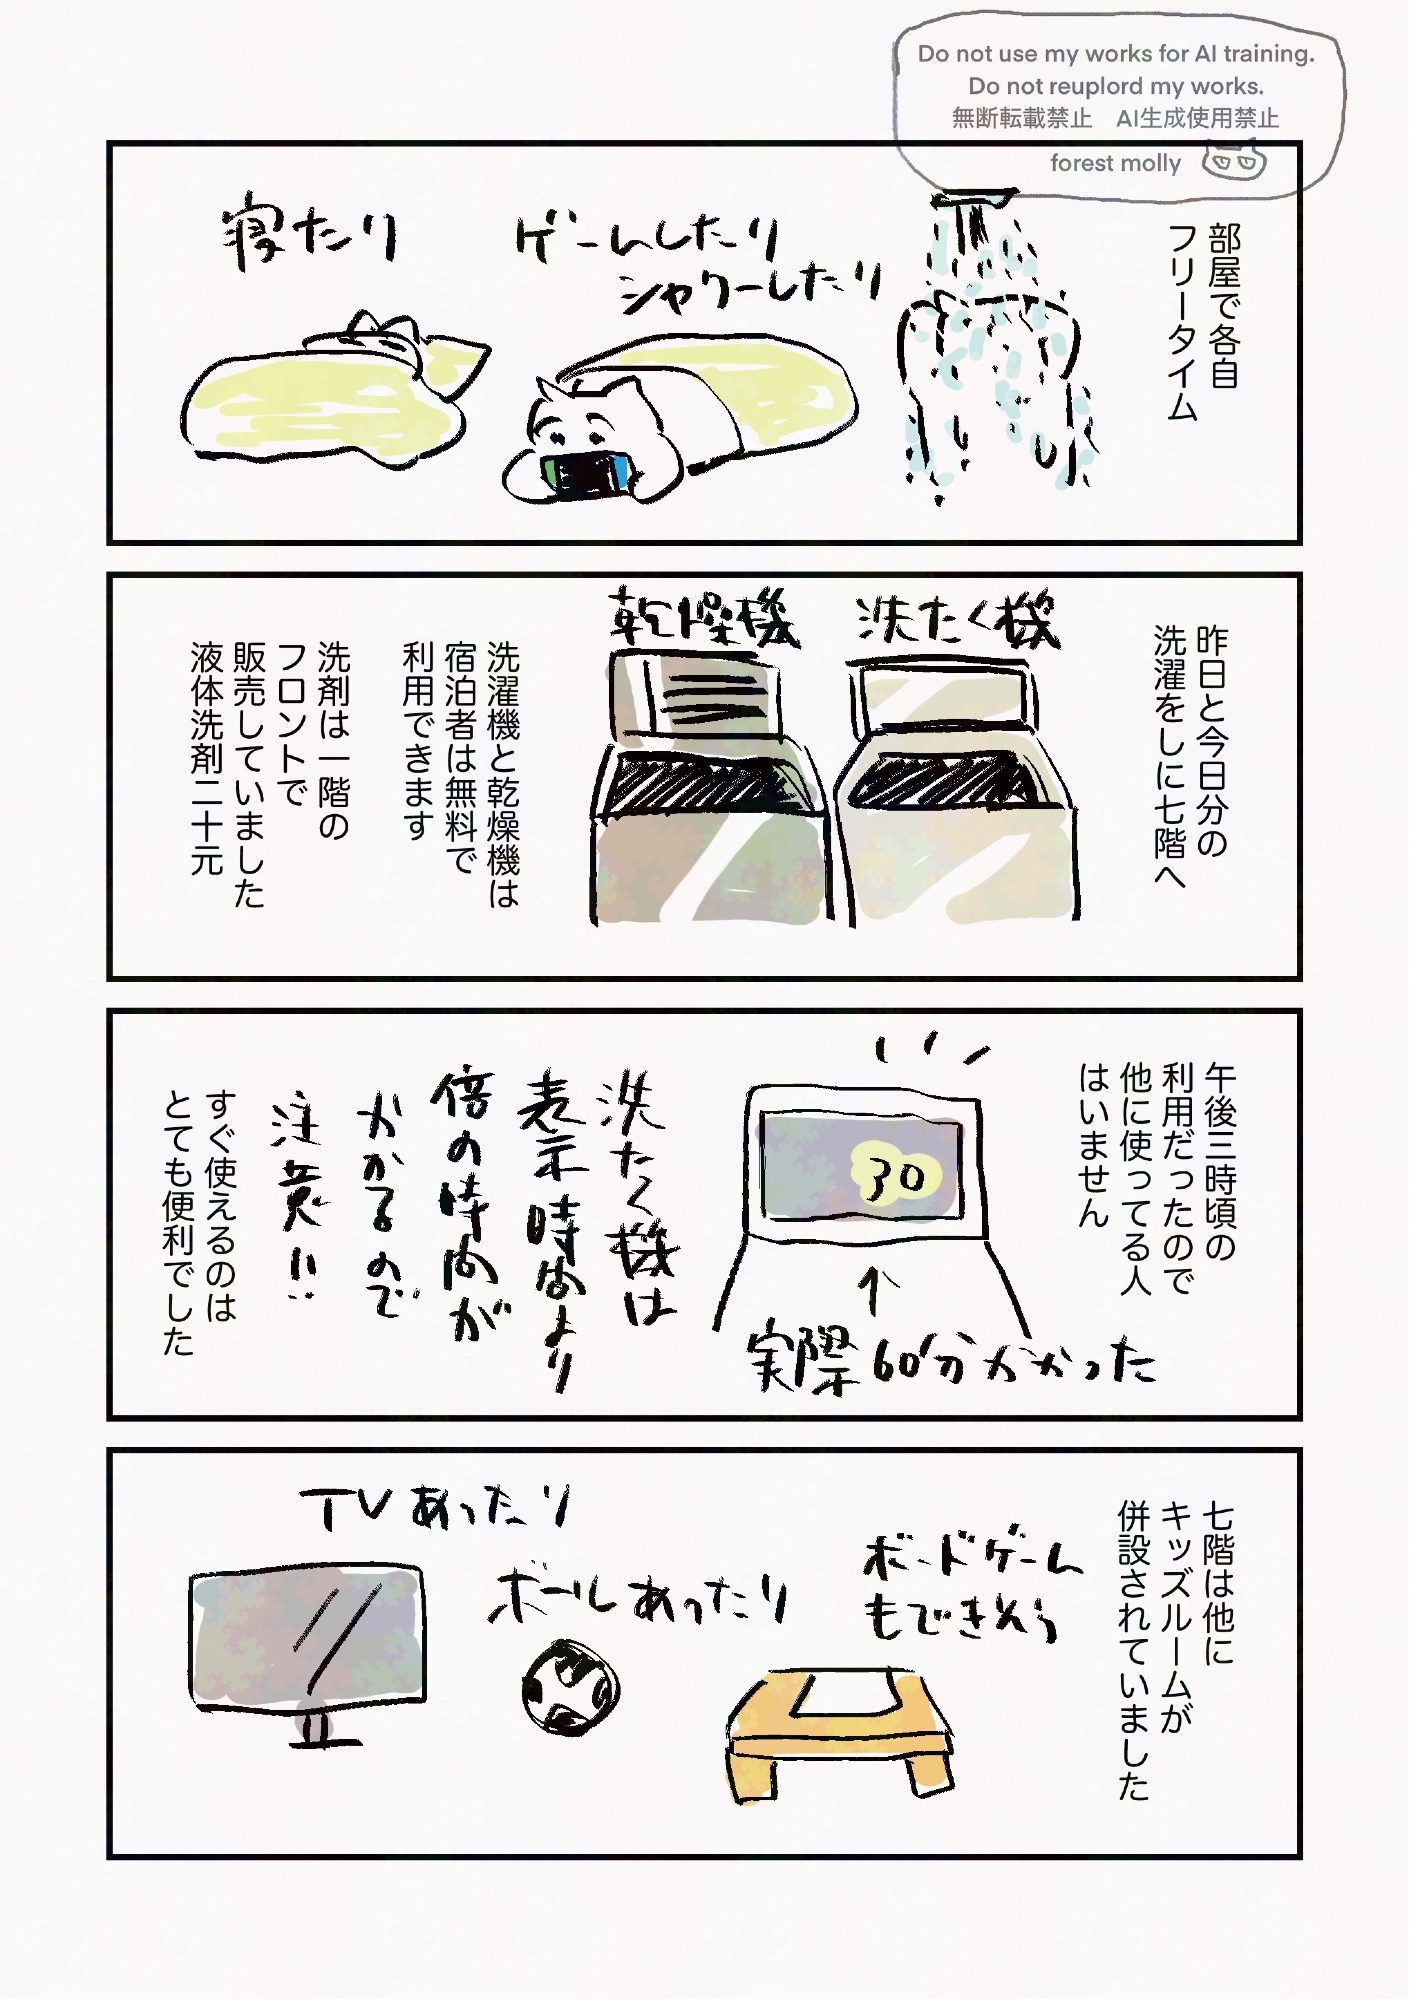 Do not use my works for AI training.
Do not reuplord my works.
無断転載禁止　AI生成使用禁止
forest molly
部屋で各自
フリータイム
ゲームしたり
シャワーしたり
寝たり
昨日と今日分の
洗濯をしに七階へ
洗たく機
乾燥機
洗濯機と乾燥機は
宿泊者は無料で
利用できます
洗剤は一階の
フロントで
販売していました
液体洗剤二十元
午後三時頃の
利用だったので
他に使ってる人
はいません
30
↑
実際60分かかった
洗たく機は
表示時間より
倍の時間が
かかるので
注意!!
すぐ使えるのは
とても便利でした
七階は他に
キッズルームが
併設されていました
ボードゲーム
もできそう
ボールあったり
TVあったり